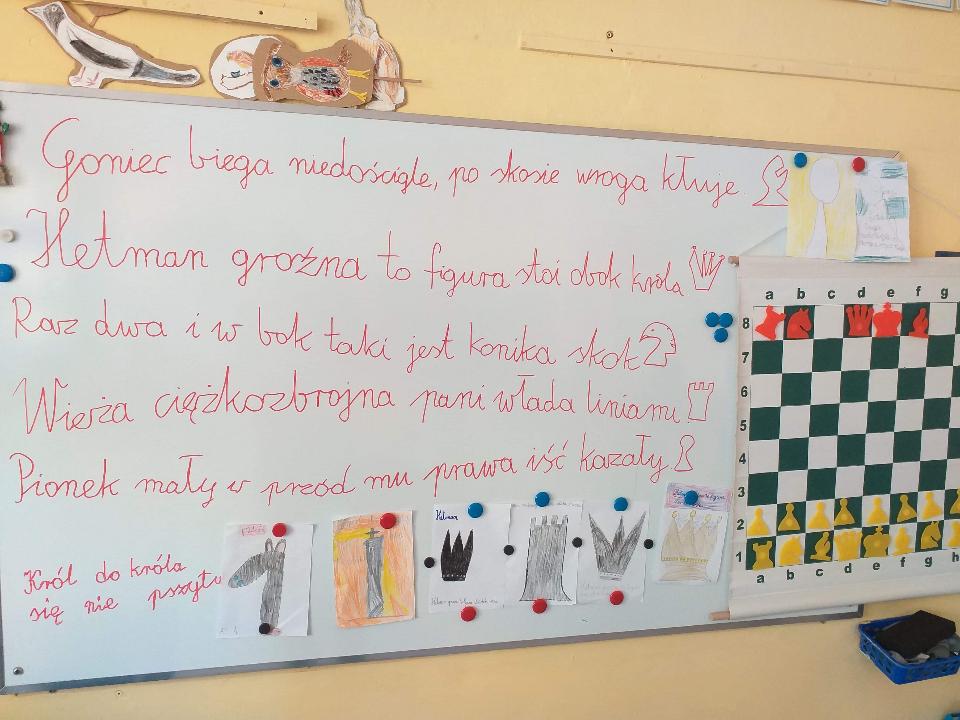 Goniec biega niedościgle, po skosie wroga kłuje.
Hetman groźna to figura stoi obok króla
Raz dwa i w bok taki jest konika skok
Wieża ciężkozbrojna pani włada liniami
Pionek mały w przód mu prawa iść kazały.
Król do króla
się nie
Hetman
a b c d e f g
8
7
6
5
4
3
2
1
a b c d e f g h